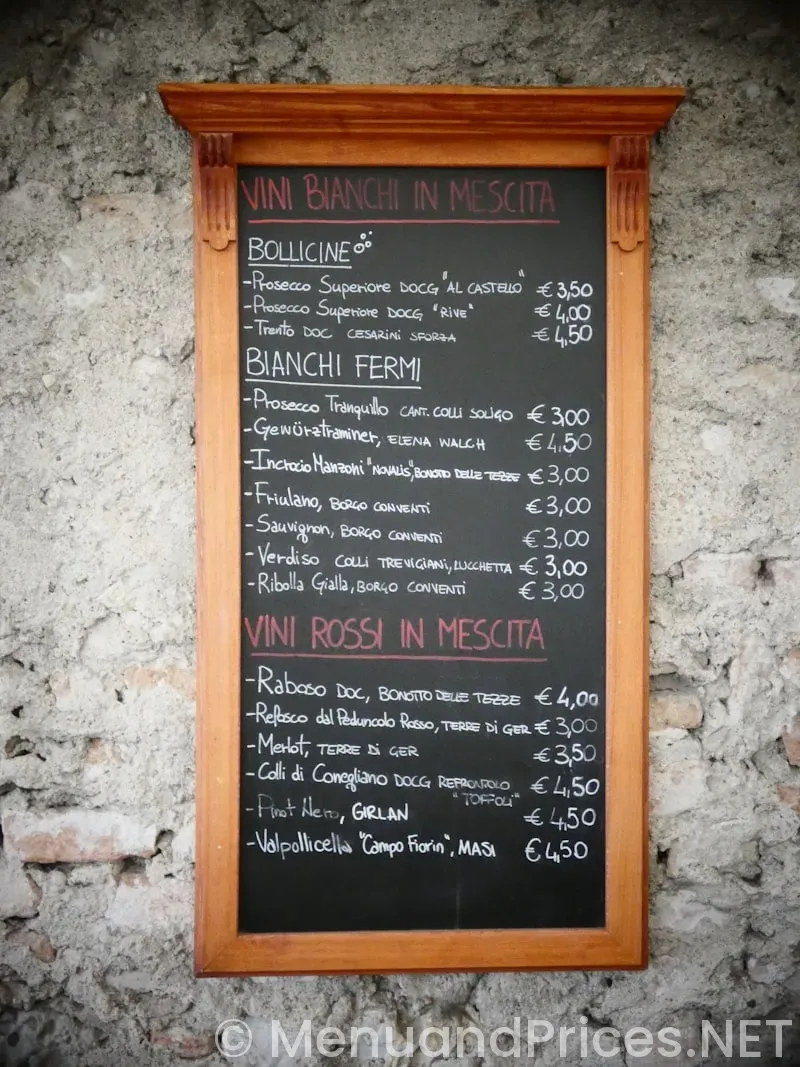 VINI BIANCHI IN MESCITA
BOLLICINE
-Prosecco Superiore DOCG "AL CASTELLO" € 3,50
-Prosecco Superiore DOCG "RIVE" € 4,00
-Trento DOC CESARINI SFORZA € 4,50
BIANCHI FERMI
-Prosecco Tranquillo CANT. COLLI SOLIGO € 3,00
-Gewürztraminer, ELENA WALCH € 4,50
-Incrocio Manzoni "NOVALIS", BONOTTO DELLE TEZZE € 3,00
-Friulano, BORGO CONVENTI € 3,00
-Sauvignon, BORGO CONVENTI € 3,00
-Verdiso COLLI TREVIGIANI, LUCCHETTA € 3,00
-Ribolla Gialla, BORGO CONVENTI € 3,00
VINI ROSSI IN MESCITA
-Raboso DOC, BONOTTO DELLE TEZZE € 4,00
-Refosco dal Peduncolo Rosso, TERRE Di GER € 3,00
-Merlot, TERRE Di GER € 3,50
-Colli di Conegliano DOCG REFRONTOLO € 4,50
"TOFFOLI"
-Pinot Nero, GIRLAN € 4,50
-Valpollicella "Campo Fiorin", MASI € 4,50
© MenuandPrices.NET